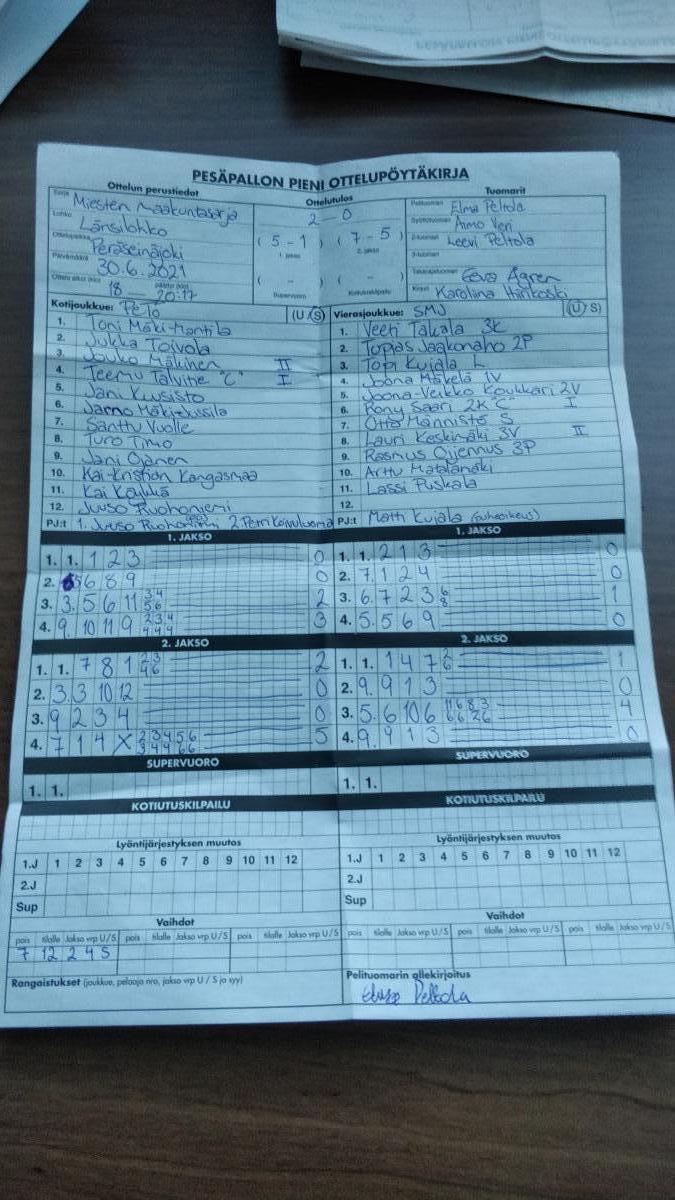 PESÄPALLON PIENI OTTELUPÖYTÄKIRJA
Ottelun perustiedot
Sarja Miesten maakuntasarja
Lohko Länsilohko
Ottelupaikka Peräseinäjoki
Päivämäärä 30.6.2021
Ottelu alkoi (klo) 18 — päättyi (klo) 20:17
Ottelutulos
2 – 0
( 5 - 1 ) ( 7 - 5 )
1. jakso 2. jakso
( - ) ( - )
Supervuoro Kotiutuskilpailu
Tuomarit
Pelituomari Elma Peltola
Syöttötuomari Aimo Veri
2-tuomari Leevi Peltola
3-tuomari
Takarajatuomari Eeva Ågren
Kirjuri Karoliina Hirvikoski
Kotijoukkue: PeTo (U/S)
1. Toni Mäki-Mantila
2. Jukka Toivola
3. Jouko Mäkinen II
4. Teemu Talvitie "C" I
5. Jani Kuusisto
6. Jarno Mäki-Jussila
7. Santtu Vuolle
8. Turo Timo
9. Jani Ojanen
10. Kai-Kristian Kangasmaa
11. Kai
12. Juuso Ruohoniemi
PJ:t 1. Juuso Ruohoniemi 2. Petri Koivuluoma
Vierasjoukkue: SMJ (U/S)
1. Veeti Takala 3K
2. Topias Jaakonaho 2P
3. Topi Kujala L
4. Joona Mäkelä 1V
5. Joona-Veikko Koukkari 2V
6. Rony Saari 2K "C" I
7. Otto Männistö S
8. Lauri Keskinäki 3V II
9. Rasmus 3P
10. Arttu Matalamäki
11. Lassi Puskala
12.
PJ:t Matti Kujala (puheoikeus)
1. JAKSO
1. 1. 1 2 3 0
2. 5 6 8 9 0
3. 3. 5 6 11 3 4 5 6 2
4. 9. 10 11 9 2 3 4 4 4 4 3
1. JAKSO
1. 1. 2 1 3 0
2. 7. 1 2 4 0
3. 6. 7 2 3 6 8 1
4. 5. 5 6 9 0
2. JAKSO
1. 1. 7 8 1 2 3 4 6 2
2. 3. 3 10 12 0
3. 9 2 3 4 0
4. 7 1 4 X 2 3 4 5 6 3 4 4 6 6 5
2. JAKSO
1. 1. 1 4 7 2 6 1
2. 9. 9 1 3 0
3. 5. 6 10 6 11 6 8 3 6 6 2 6 4
4. 9. 9 1 3 0
SUPERVUORO
1. 1.
SUPERVUORO
1. 1.
KOTIUTUSKILPAILU
KOTIUTUSKILPAILU
Lyöntijärjestyksen muutos
1.J 1 2 3 4 5 6 7 8 9 10 11 12
2.J
Sup
Lyöntijärjestyksen muutos
1.J 1 2 3 4 5 6 7 8 9 10 11 12
2.J
Sup
Vaihdot
pois tilalle Jakso vrp U/S pois tilalle Jakso vrp U/S pois tilalle Jakso vrp U/S
7 12 2 4 S
Vaihdot
pois tilalle Jakso vrp U/S pois tilalle Jakso vrp U/S pois tilalle Jakso vrp U/S
Rangaistukset (joukkue, pelaaja nro, jakso vrp U / S ja syy)
Pelituomarin allekirjoitus
Peltola